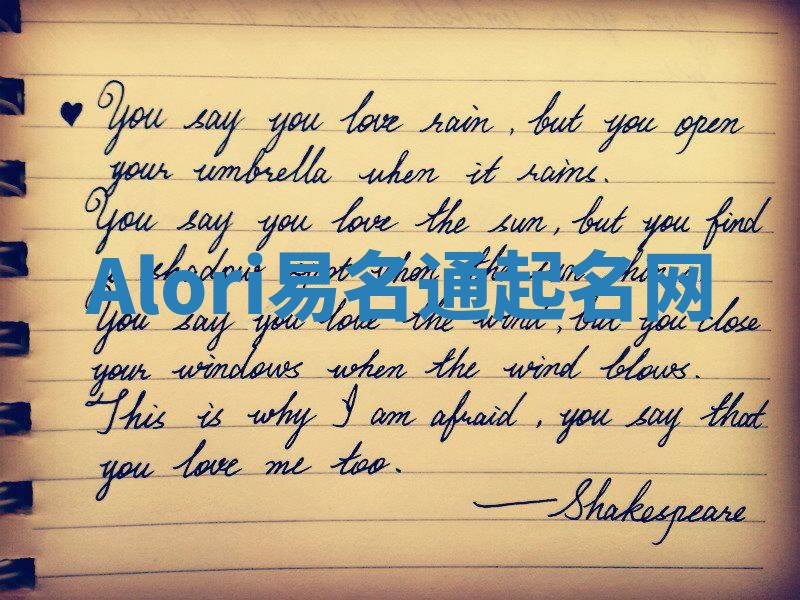 ♥ You say you love rain, but you open
your umbrella when it rains.
You say you love the sun, but you find
a shadow spot when the sun shines.
Alori易名通起名网
You say you love the wind, but you close
your windows when the wind blows.
This is why I am afraid, you say that
you love me too.
—Shakespeare